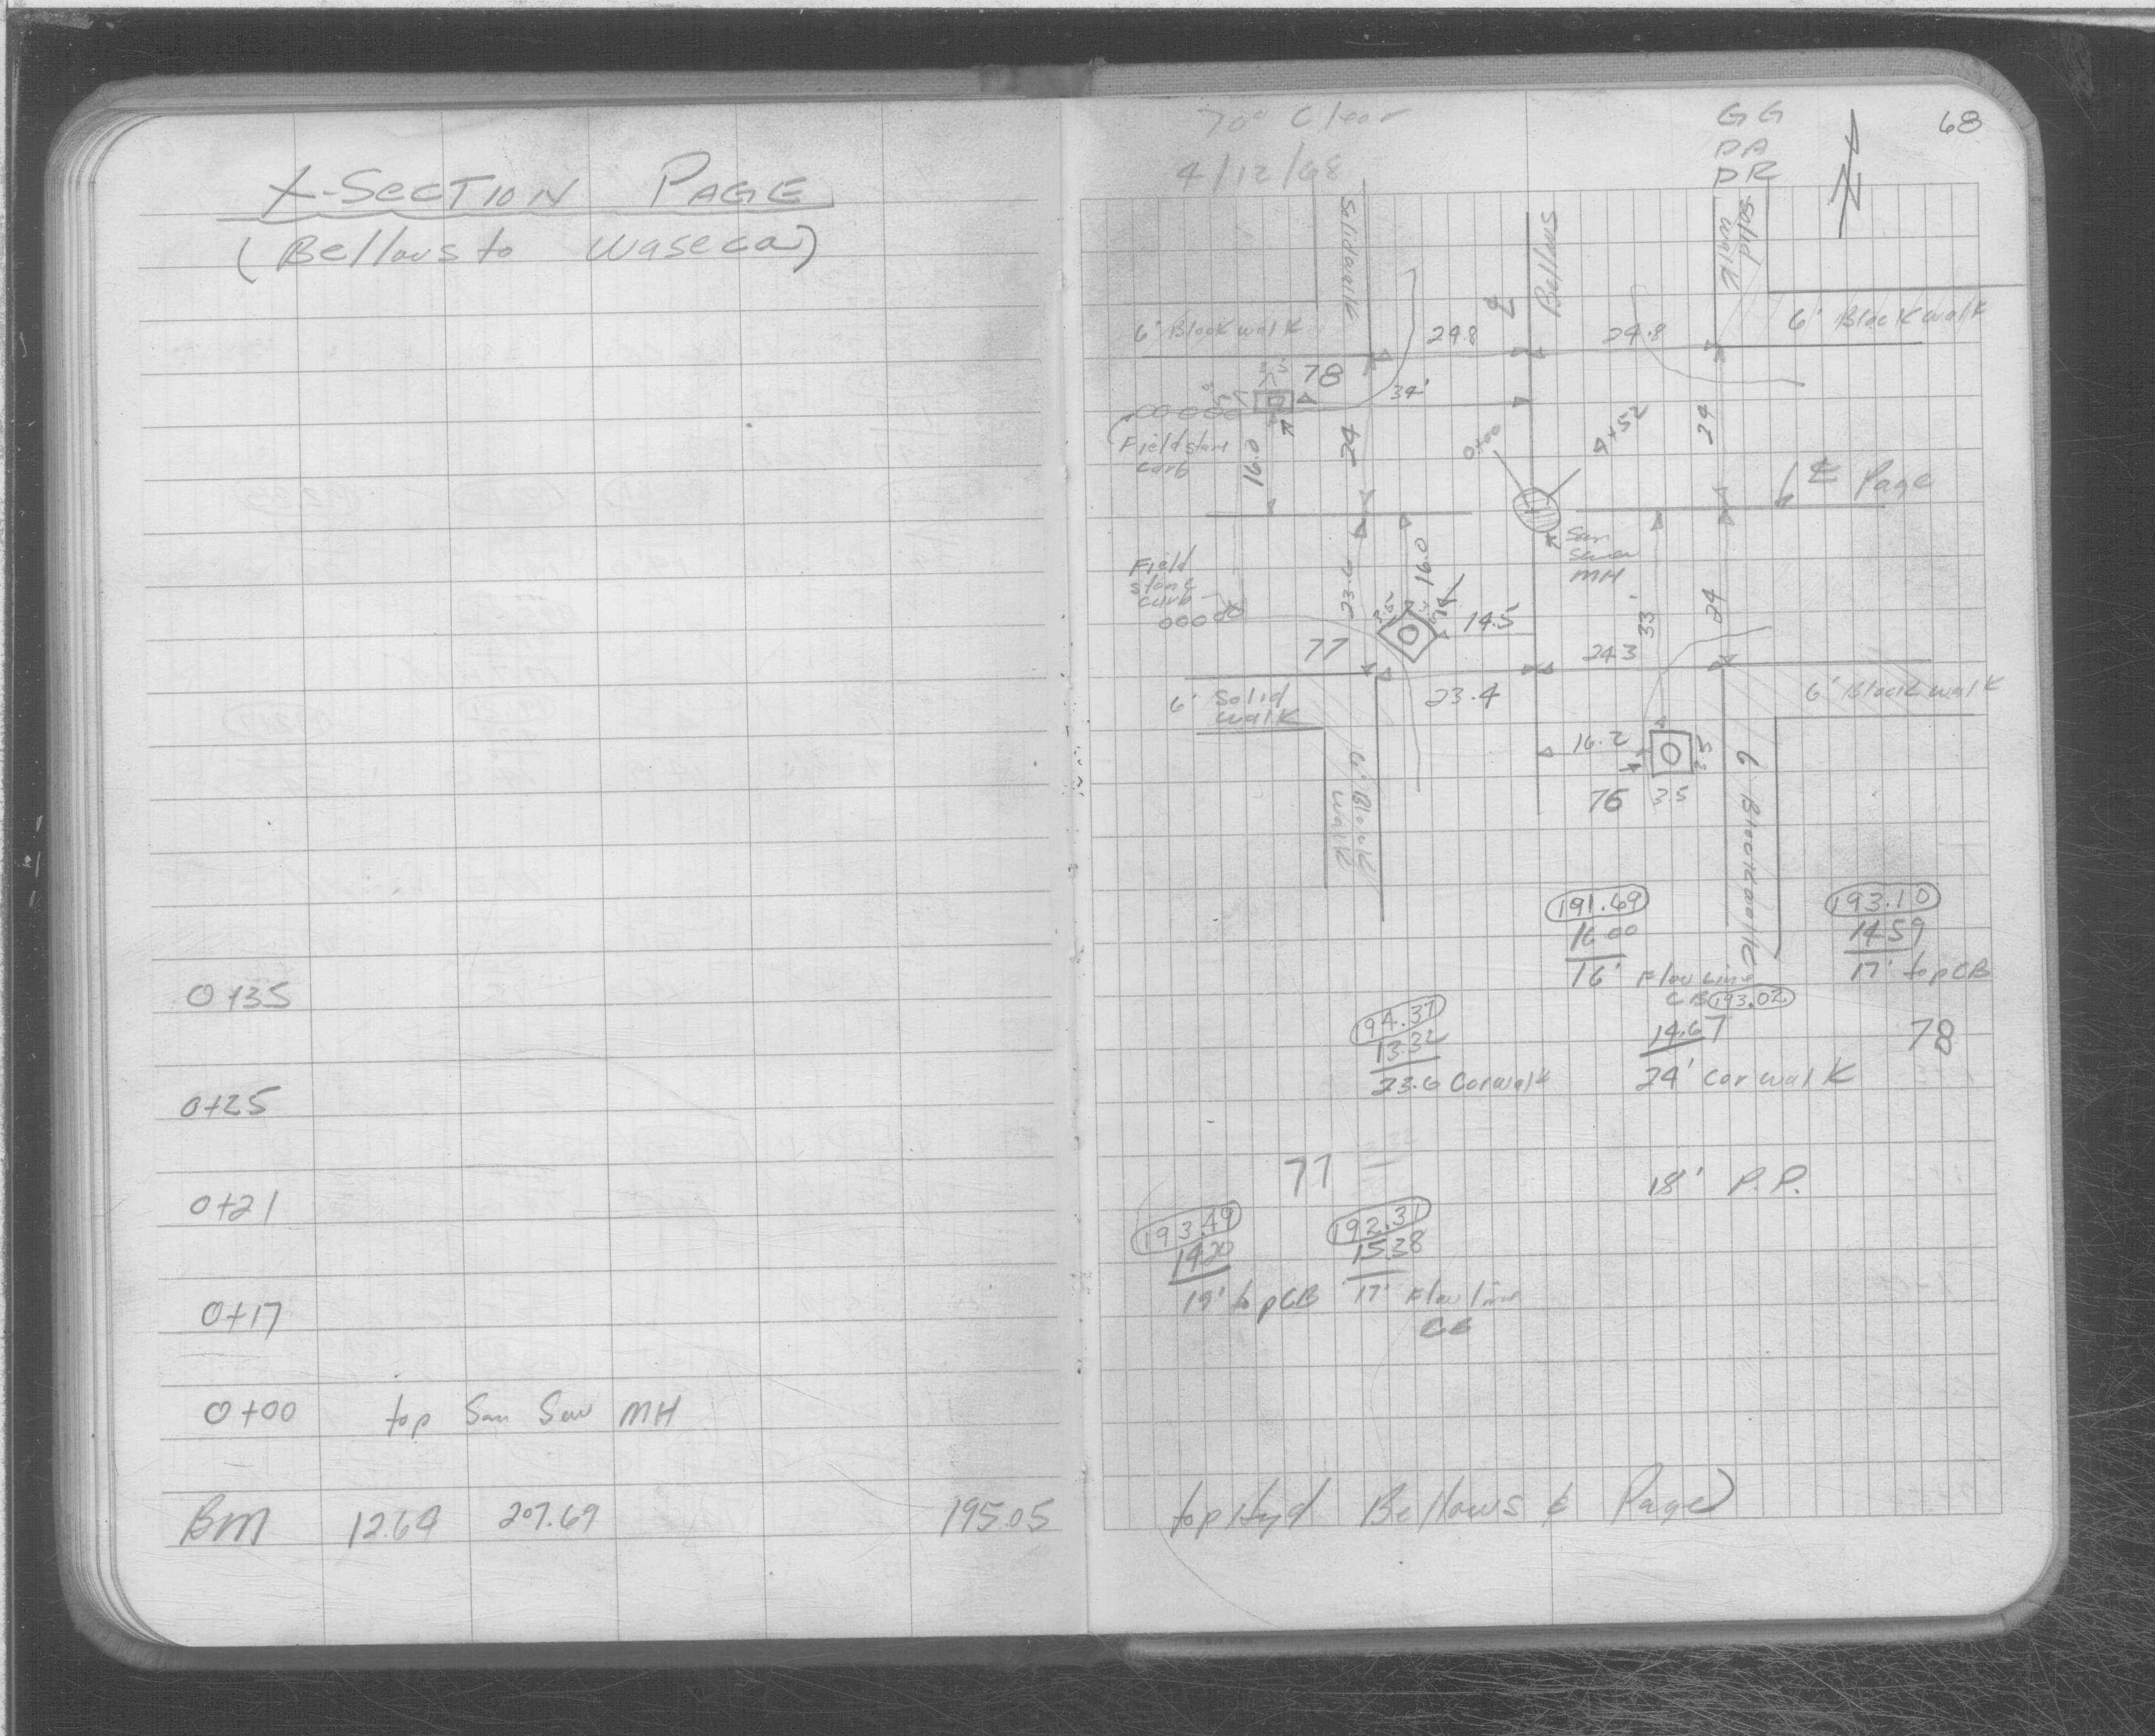 X-SECTION PAGE
(Bellows to Waseca)
0+35
0+25
0+21
0+17
0+00 top San Sew MH
BM 12.64 207.69 195.05
70° Clear
4/12/68
GG
DA
DR
68
Solid walk
Bellows
Solid
walk
6' Block walk
24.8
24.8
6' Block walk
78
34'
Field stone
curb
16.0
24
0+00
4+52
24
℄ Page
San
Sewer
MH
Field
stone
curb
16.0
14.5
33
24
77
24.3
6' Solid
walk
23.4
6' Block walk
16.2
3.5
76
3.5
6' Block
walk
6' Block walk
191.69
16.00
16' Flow Line
CB
193.10
14.59
17' top CB
193.02
14.67
24' cor walk
78
194.37
13.32
23.6 Cor walk
77
18' P.P.
193.49
14.20
19' top CB
192.31
15.38
17' Flow line
CB
top Hyd Bellows & Page